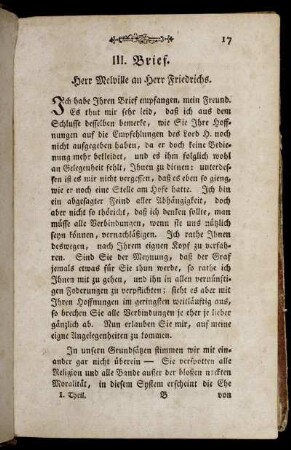 17
III. Brief.
Herr Melville an Herr Friedrichs.
Ich habe Ihren Brief empfangen, mein Freund.
Es thut mir sehr leid, daß ich aus dem
Schlusse desselben bemerke, wie Sie Ihre Hoff-
nungen auf die Empfehlungen des Lord H. noch
nicht aufgegeben haben, da er doch keine Bedie-
nung mehr bekleidet, und es ihm folglich wohl
an Gelegenheit fehlt, Ihnen zu dienen: unterdes-
sen ist es mir nicht vergessen, daß es eben so gieng,
wie er noch eine Stelle am Hofe hatte. Ich bin
ein abgesagter Feind aller Abhängigkeit, doch
aber nicht so thöricht, daß ich denken sollte, man
müsse alle Verbindungen, wenn sie uns nüzlich
seyn können, vernachlässigen. Ich rathe Ihnen
deswegen, nach Ihrem eignen Kopf zu verfah-
ren. Sind Sie der Meynung, daß der Graf
jemals etwas für Sie thun werde, so rathe ich
Ihnen mit zu gehen, und ihn in allen vernünfti-
gen Foderungen zu verpflichten: sieht es aber mit
Ihren Hoffnungen im geringsten weitläuftig aus,
so brechen Sie alle Verbindungen je eher je lieber
gänzlich ab. Nun erlauben Sie mir, auf meine
eigne Angelegenheiten zu kommen.
In unsern Grundsätzen stimmen wir mit ein-
ander gar nicht überein — Sie verspotten alle
Religion und alle Bande ausser der bloßen nackten
Moralität, in diesem System erscheint die Ehe
I. Theil. B von